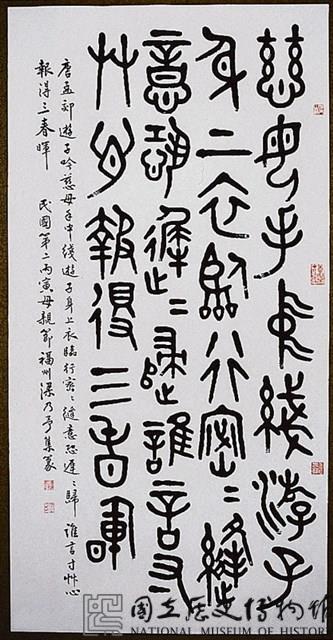 慈母手中綫游子
身上衣臨行密〻縫
意恐遲〻歸誰言寸
艸心報得三春暉
唐孟郊遊子吟慈母手中綫遊子身上衣臨行密〻縫意恐遲〻歸誰言寸艸心
報得三春暉 民國第二丙寅母親節福州梁乃予集篆
國立歷史博物館
NATIONAL MUSEUM OF HISTOR